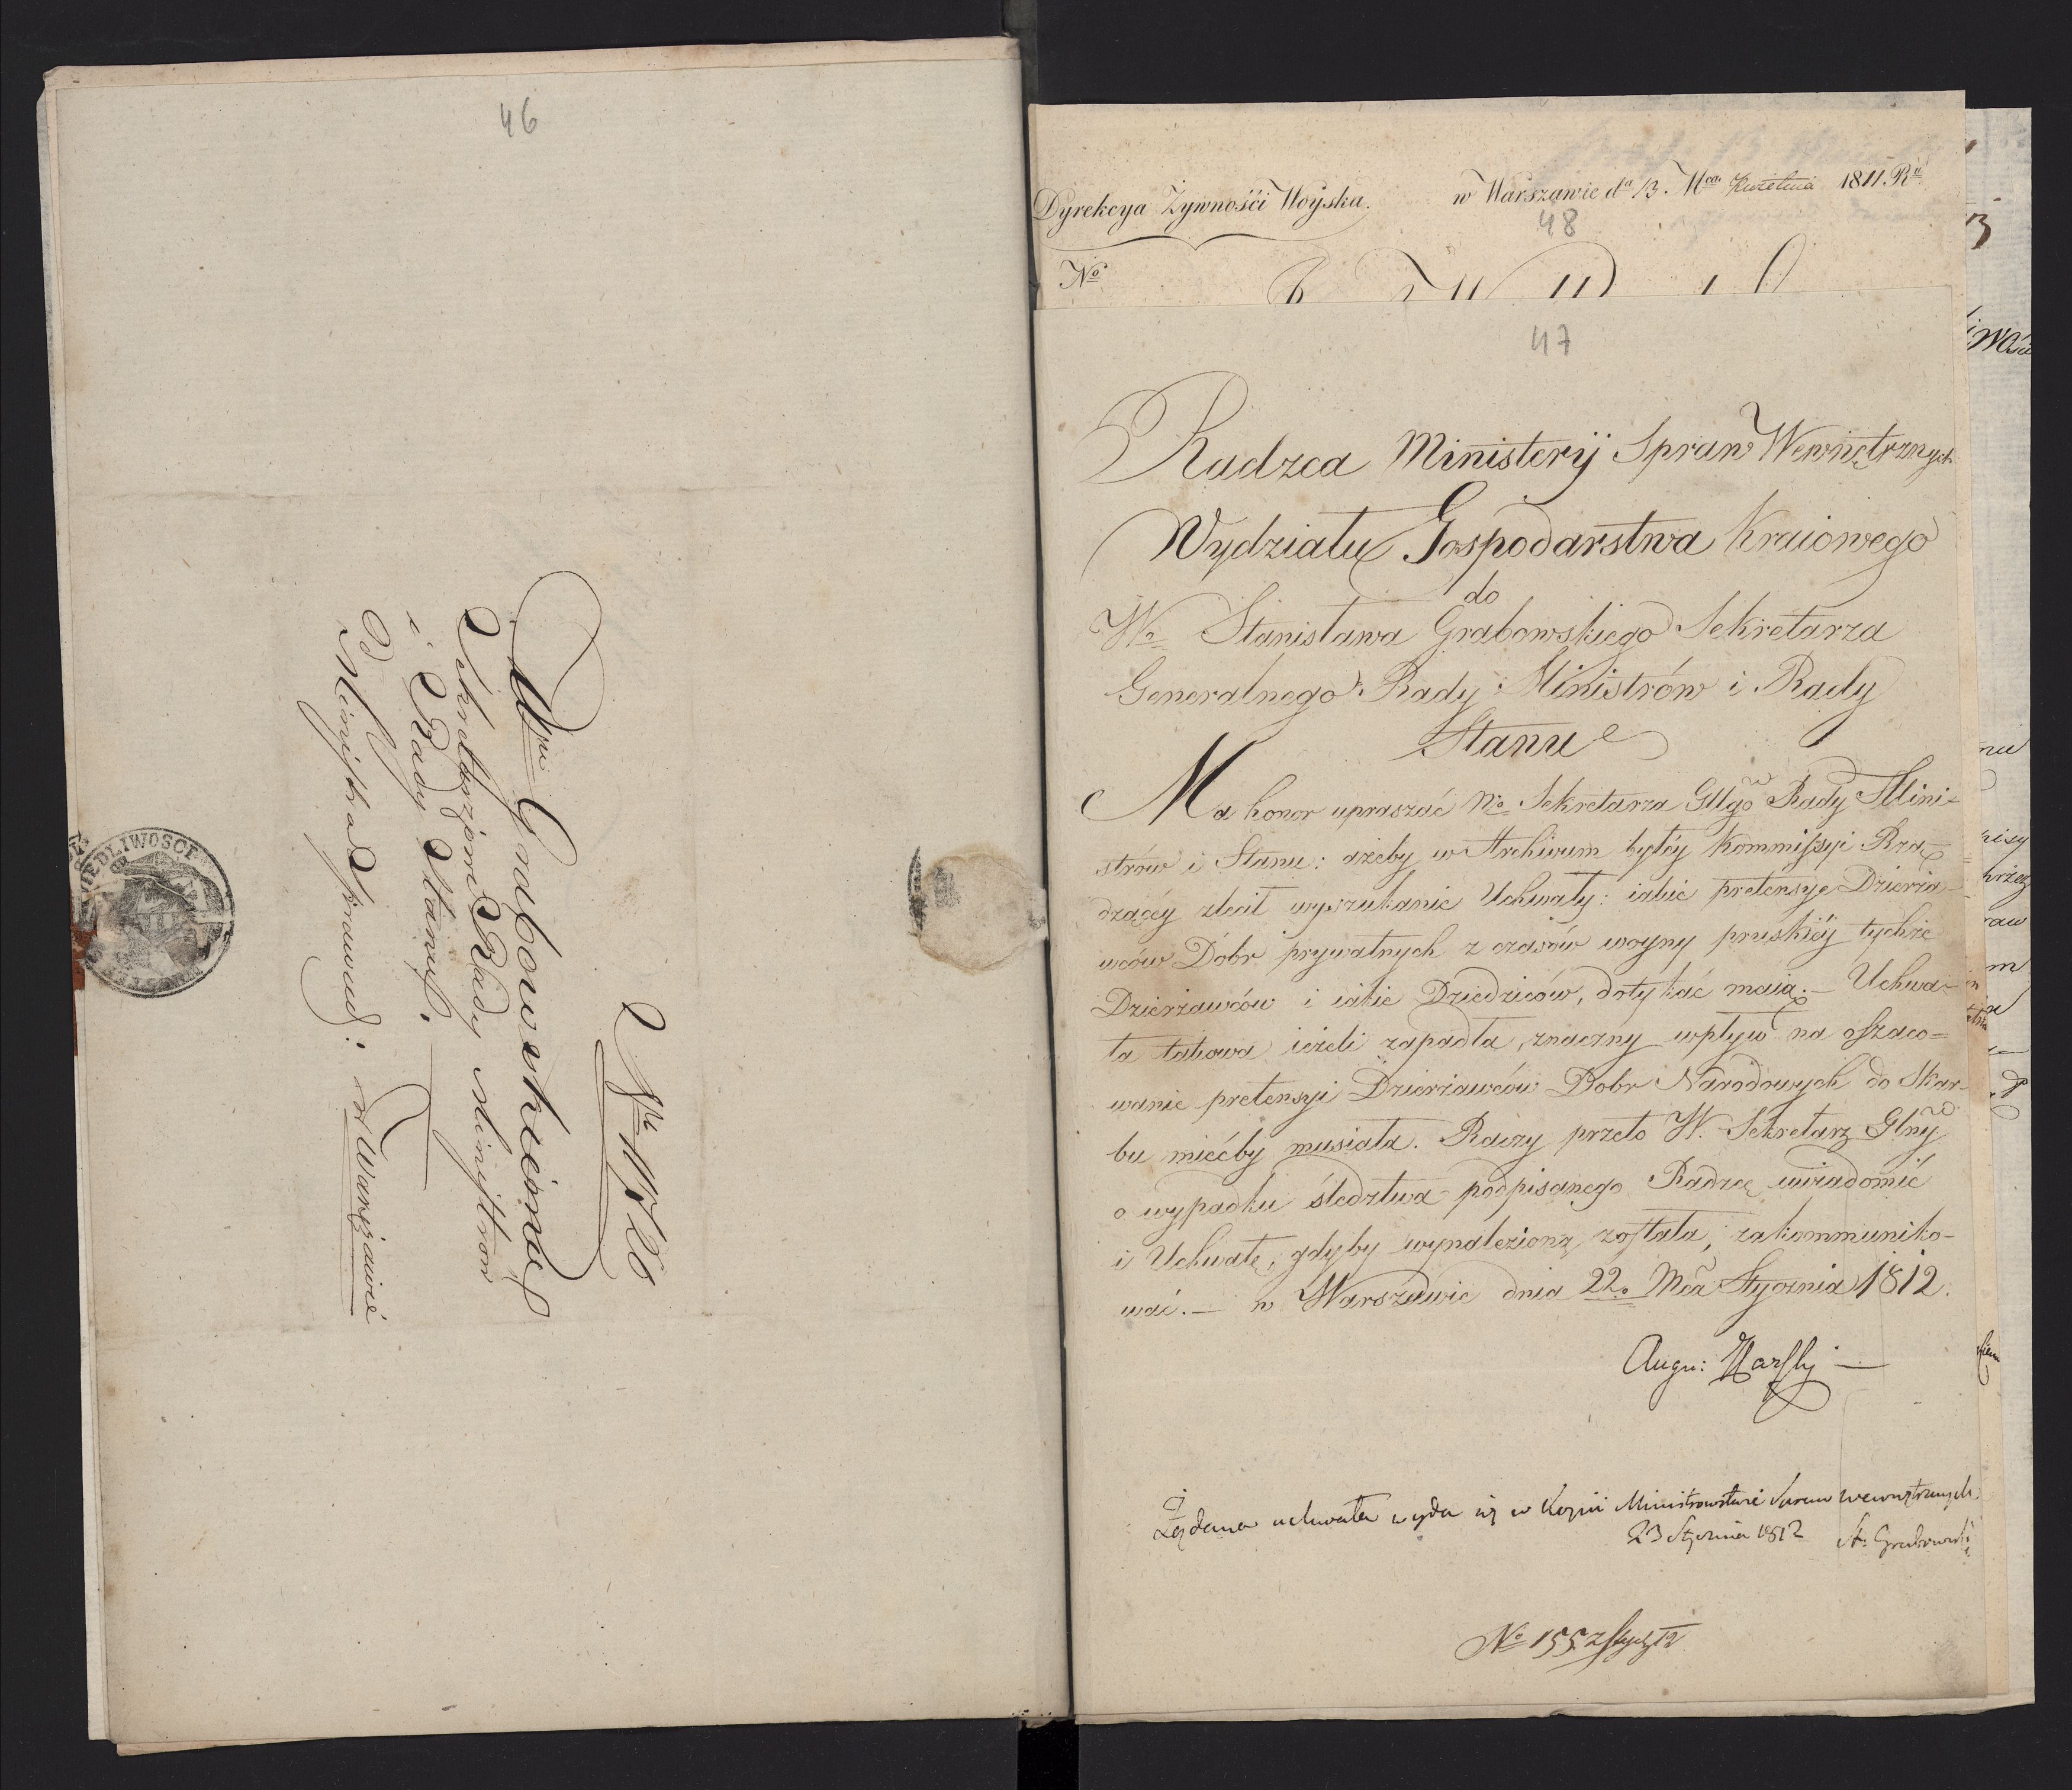 46
WPnu Grabowskiemu
Sekretarzowi Rady Ministrow
i Rady Stanu.
Minister Sprawied: w Warszawie
No 1526
IEDLIWOSCI
Dyrekcya Żywnośći Woyska.
w Warszawie da 13. Mca Kwietnia 1811. Ru
48
No
47
Radzca Ministerij Spraw Wewnętrznych
Wydziału Gospodarstwa Kraiowego
do
Wo Stanisława Grabowskiego Sekretarza
Generalnego Rady Ministrów i Rady
Stanu
Ma honor upraszać Wo Sekretarza Gllgo Rady Mini-
strów i Stanu: ażeby w Archiwum byłéy Kommissyi Rzą-
dzącéy zlecił wyszukanie Uchwały: iakie pretensye Dzierża-
wców Dóbr prywatnych z czasów woyny pruskiéy tychże
Dzierżawców i iakie Dziedziców, dotykać maią. – Uchwa-
ła takowa ieżeli zapadła, znaczny wpływ na oszaco=
wanie pretensyi Dzierżawców Dobr Narodowych do Skar-
bu miećby musiała. Raczy przeto W. Sekretarz Glny
o wypadku śledztwa podpisanego Radzcę uwiadomić
i Uchwałę, gdyby wynalezioną została, zakommuniko-
wać. – w Warszawie dnia 22o Mca Stycznia 1812.
Augu:
Żądana uchwała wyda się w Kopii Ministrowstwie Spraw wewnętrznych.
23 Stycznia 1812 St: Grabowski
No 155 z Stycz 12